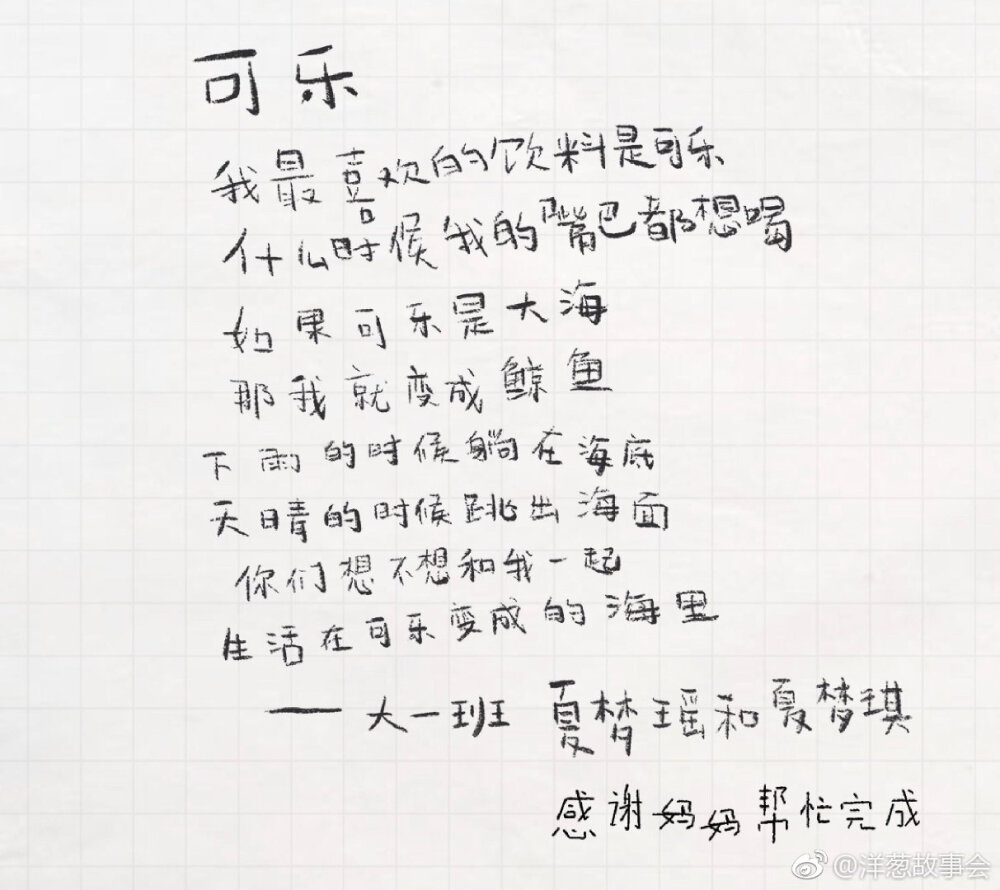 可乐
我最喜欢的饮料是可乐
什么时候我的嘴巴都想喝
如果可乐是大海
那我就变成鲸鱼
下雨的时候躺在海底
天晴的时候跳出海面
你们想不想和我一起
生活在可乐变成的海里
——大一班 夏梦瑶和夏梦琪
感谢妈妈帮忙完成
@洋葱故事会